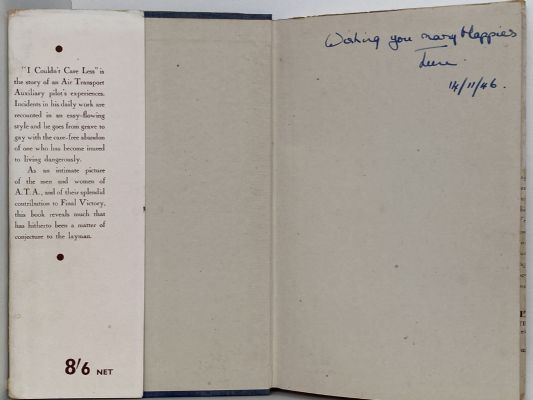 "I Couldn't Care Less" is
the story of an Air Transport
Auxiliary pilot's experiences.
Incidents in his daily work are
recounted in an easy-flowing
style and he goes from grave to
gay with the care-free abandon
of one who has become inured
to living dangerously.
As an intimate picture
of the men and women of
A.T.A., and of their splendid
contribution to Final Victory,
this book reveals much that
has hitherto been a matter of
conjecture to the layman.
8/6 NET
Wishing you many Happies
June.
14/11/46.